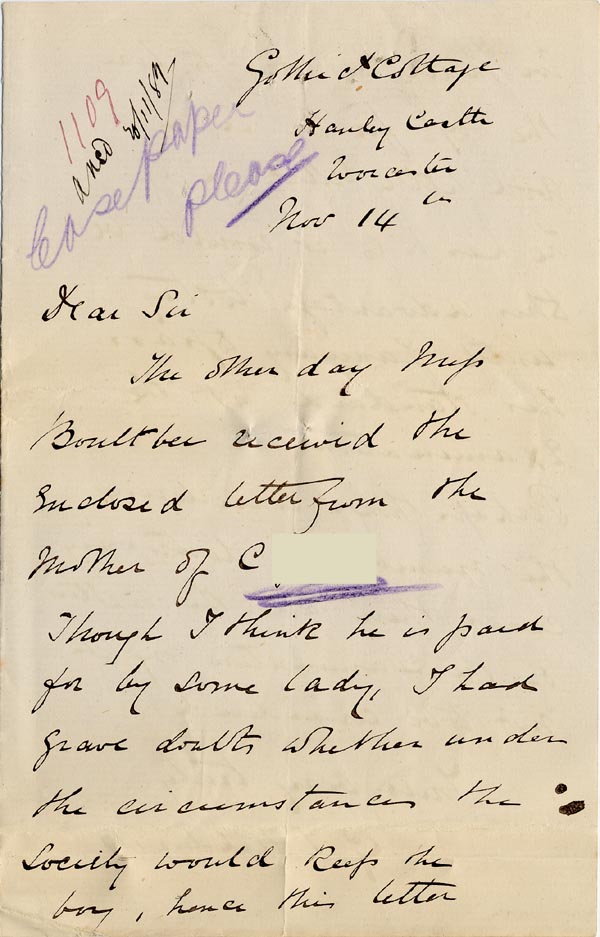 1109
ansd 26/11/89
Case paper
please
Gothic Cottage
Hanley Castle
Worcester
Nov 14th
Dear Sir
The other day Miss
Boultbee received the
enclosed letter from the
Mother of C
Though I think he is paid
for by some lady, I had
grave doubts whether under
the circumstances the
Society would keep the
boy, hence this letter